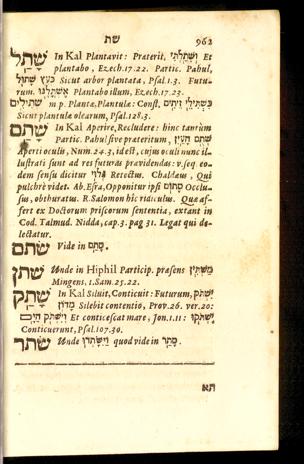 שת 962
שָׁתַל In Kal Plantavit: Præterit, וְשָׁתַלְתִּי Et
plantabo, Ezech.17.22. Partic. Pahul,
כְּעֵץ שָׁתוּל Sicut arbor plantata, Psal.1.3. Futu-
rum. אֶשְׁתֳּלֶנּוּ Plantabo illum, Ezech.17.23.
שְׁתוּלִים m p. Plantæ, Plantulæ: Const. כִּשְׁתִילֵי זֵיתִים
Sicut plantulæ olearum, Psal.128.3.
שָׁתַם In Kal Aperire, Recludere: hinc tantùm
Partic. Pahul sive præteritum, שְׁתֻם הָעַיִן
Aperti oculi, Num.24.3. id est, cujus oculi nunc il-
lustrati sunt ad res futuras prævidendas: v. seq. eo-
dem sensu dicitur גְּלוּי Retectus. Chaldæus, Qui
pulchrè videt. Ab. Esra, Opponitur ipsi סָתוּם Occlu-
sus, obthuratus. R. Salomon hîc ridiculus. Quæ af-
fert ex Doctorum priscorum sententia, extant in
Cod. Talmud. Nidda, cap.3. pag 31. Legat qui de-
lectatur.
שתם Vide in סָתַם.
שתן Unde in Hiphil Particip. præsens מַשְׁתִּין
Mingens, 1.Sam.25.22.
שָׁתַק In Kal Siluit, Conticuit: Futurum, יִשְׁתֹּק
מָדוֹן Silebit contentio, Prov.26. ver.20:
וְיִשְׁתֹּק הַיָּם Et conticescat mare, Jon.1.11: יִשְׁתֹּקוּ
Conticuerunt, Psal.107.30.
שתר Unde וַיִּשָּׂתְרוּ quod vide in סָתַר.
תא